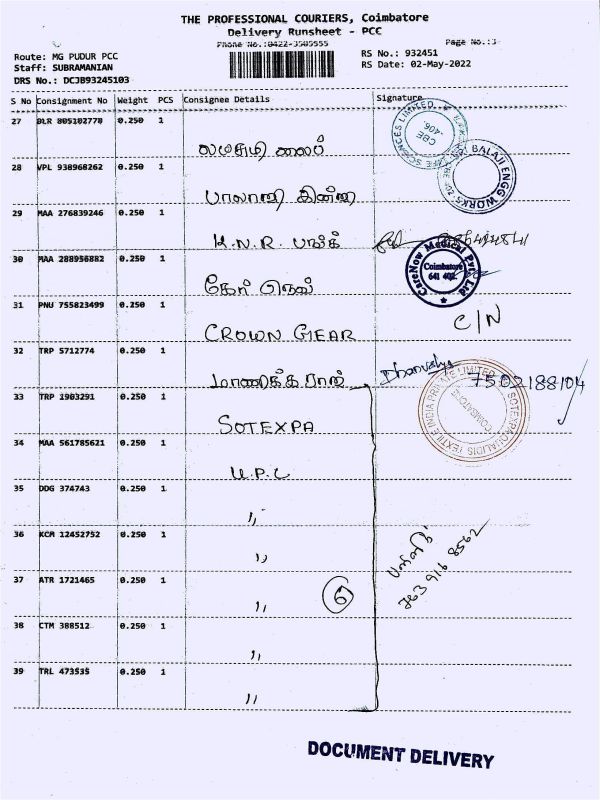 THE PROFESSIONAL COURIERS, Coimbatore
Delivery Runsheet - PCC
Phone No.:0422-3505555
Page No.:3
Route: MG PUDUR PCC
Staff: SUBRAMANIAN
DRS No.: DCJB93245103
RS No.: 932451
RS Date: 02-May-2022
S No Consignment No Weight PCS Consignee Details Signature
27 BLR 805102778 0.250 1
லட்சுமி லைப்
28 VPL 938968262 0.250 1
பாலாஜி
29 MAA 276839246 0.250 1
K.N.R.
30 MAA 288956882 0.250 1
கேர்
31 PNU 755823499 0.250 1
CROWN GEAR C/N
32 TRP 5712774 0.250 1
மாணிக்கராஜ் Dhanvahya 7502188104
33 TRP 1903291 0.250 1
SOTEXPA
34 MAA 561785621 0.250 1
U.P.C
35 DDG 374743 0.250 1
,,
36 KCM 12452752 0.250 1
,,
37 ATR 1721465 0.250 1
,, 6
38 CTM 388512 0.250 1
,,
39 TRL 473535 0.250 1
,,
763 916 8562
SCIENCES LIMITED
CBE
-406.
BALAJI ENGG WORKS
CareNow Medical Pvt. Ltd
Coimbatore
641 402.
SOTEXPA QUALIDIS TEXTILE INDIA PRIVATE LIMITED
COIMBATORE
DOCUMENT DELIVERY